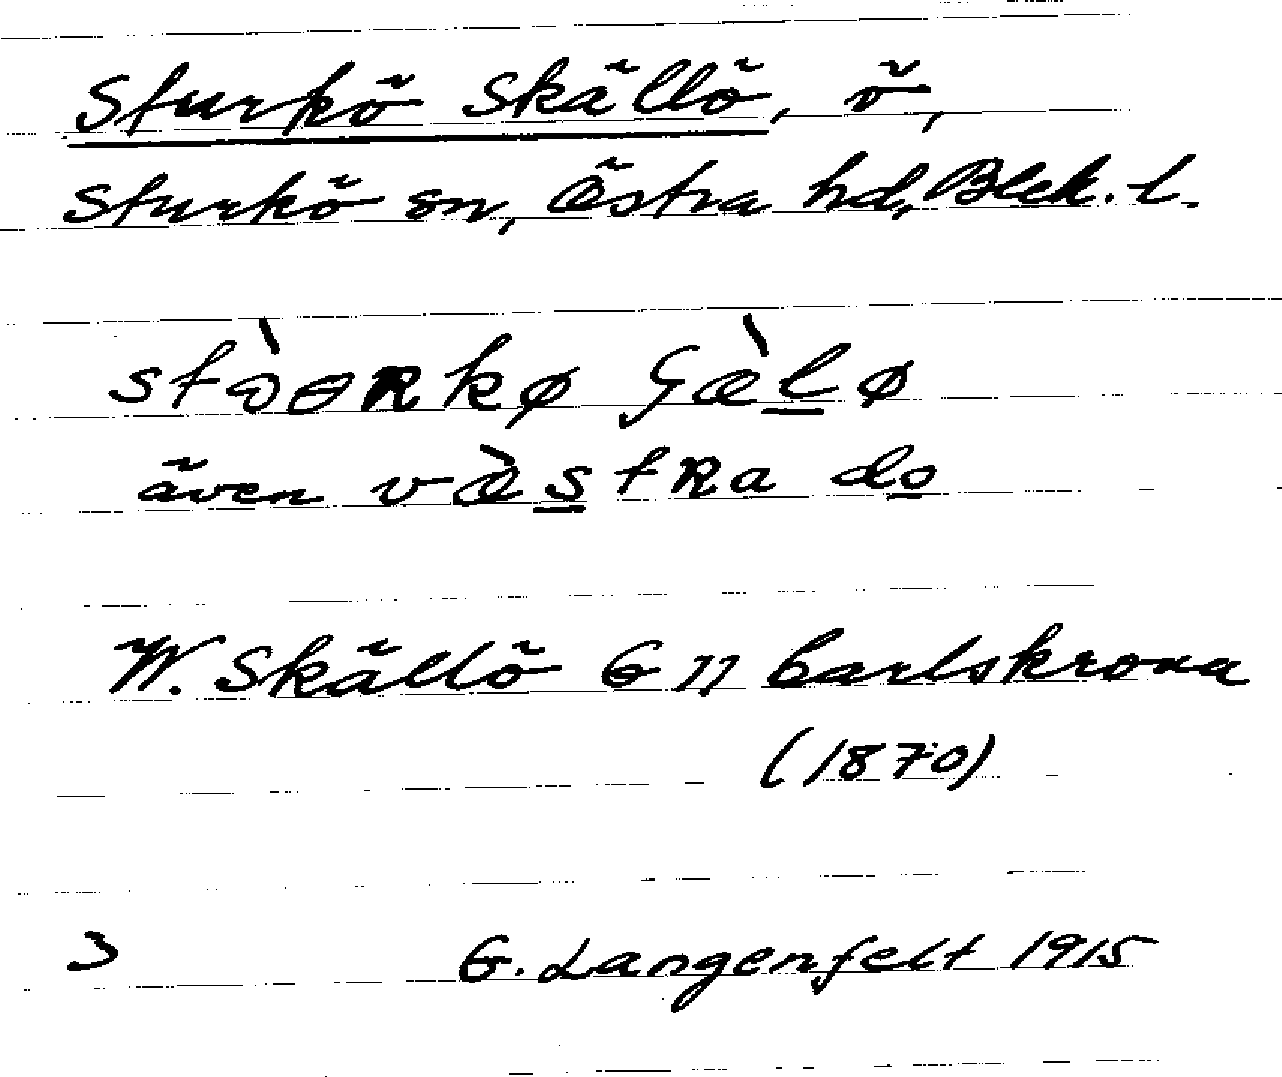 Sturkö Skällö, ö,
Sturkö sn, Östra hd, Blek. l.
även västra do
W. Skällö G 77 Carlskrona
(1870)
3 G. Langenfelt 1915